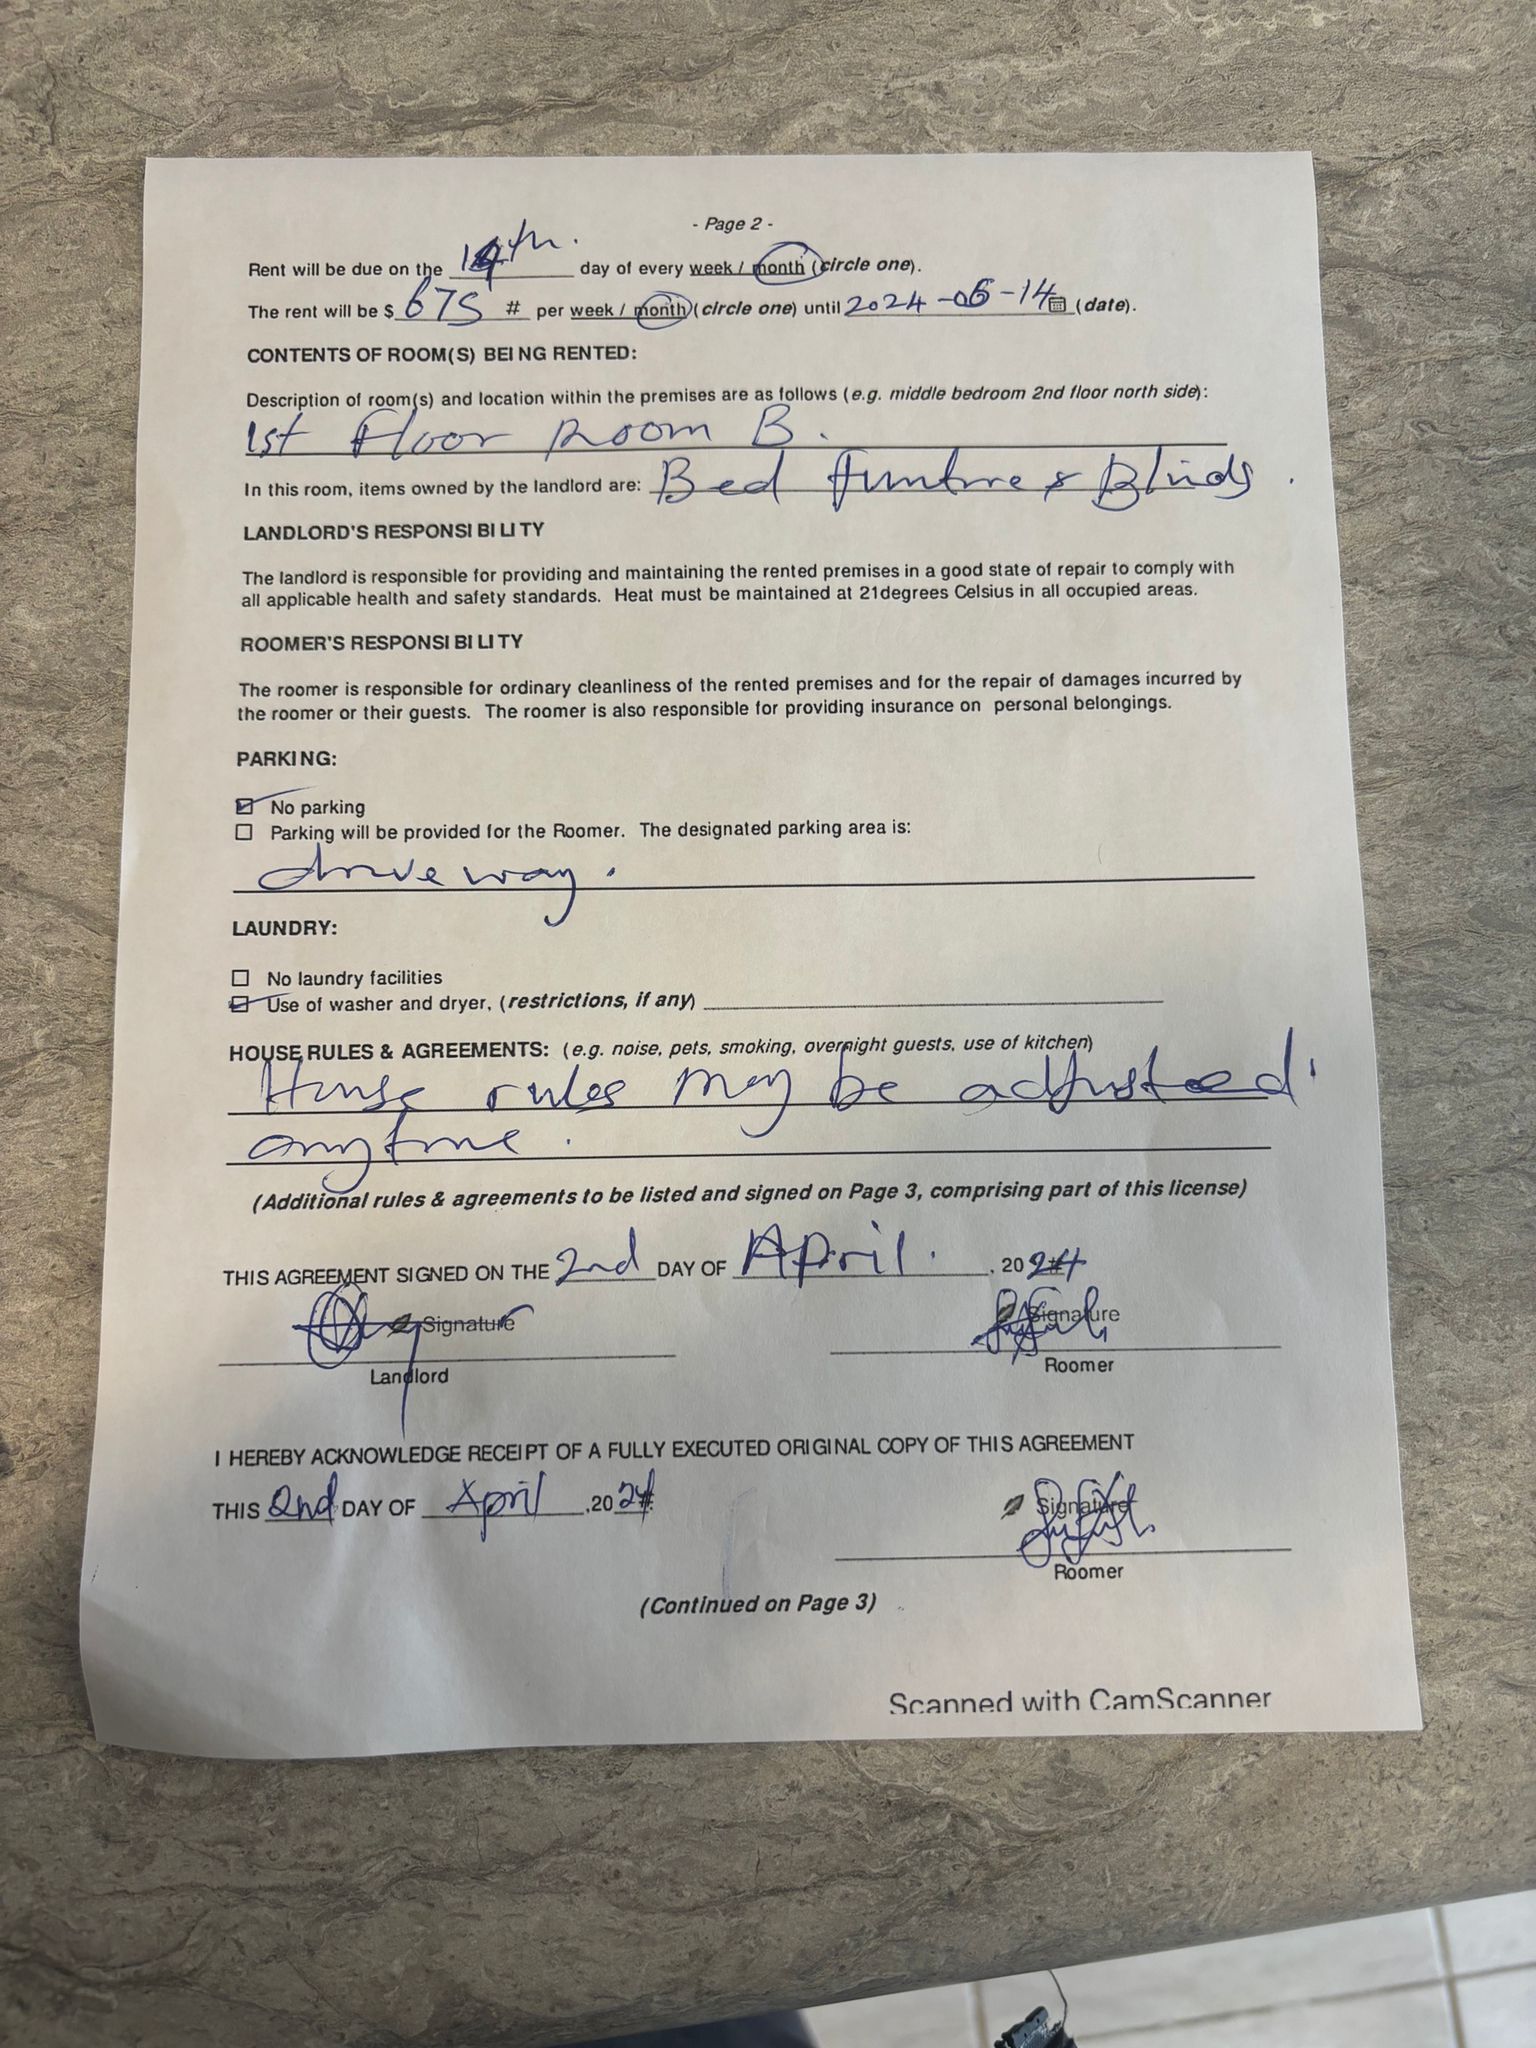 - Page 2 -
Rent will be due on the 14th. day of every week / month (circle one).
The rent will be $ 675 # per week / month (circle one) until 2024-05-14 (date).
CONTENTS OF ROOM(S) BEING RENTED:
Description of room(s) and location within the premises are as follows (e.g. middle bedroom 2nd floor north side):
1st Floor Room B.
In this room, items owned by the landlord are: Bed Furnture & Blinds.
LANDLORD'S RESPONSIBILITY
The landlord is responsible for providing and maintaining the rented premises in a good state of repair to comply with
all applicable health and safety standards. Heat must be maintained at 21degrees Celsius in all occupied areas.
ROOMER'S RESPONSIBILITY
The roomer is responsible for ordinary cleanliness of the rented premises and for the repair of damages incurred by
the roomer or their guests. The roomer is also responsible for providing insurance on personal belongings.
PARKING:
No parking
Parking will be provided for the Roomer. The designated parking area is:
driveway.
LAUNDRY:
No laundry facilities
Use of washer and dryer, (restrictions, if any)
HOUSE RULES & AGREEMENTS: (e.g. noise, pets, smoking, overnight guests, use of kitchen)
House rules may be adjusteed
anytime.
(Additional rules & agreements to be listed and signed on Page 3, comprising part of this license)
THIS AGREEMENT SIGNED ON THE 2nd DAY OF April. , 20 24
Signature Signature
Landlord Roomer
I HEREBY ACKNOWLEDGE RECEIPT OF A FULLY EXECUTED ORIGINAL COPY OF THIS AGREEMENT
THIS 2nd DAY OF April ,20 24
Signature
Roomer
(Continued on Page 3)
Scanned with CamScanner